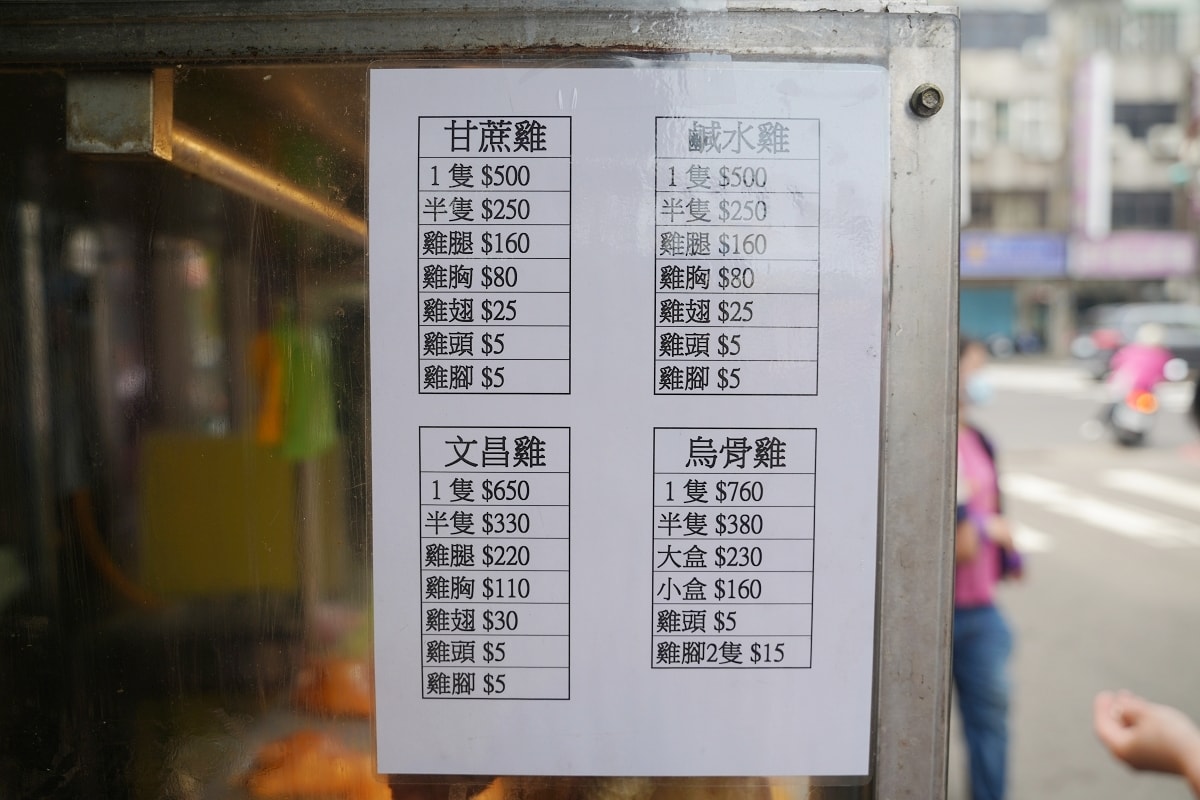 甘蔗雞
1隻 $500
半隻 $250
雞腿 $160
雞胸 $80
雞翅 $25
雞頭 $5
雞腳 $5
鹹水雞
1隻 $500
半隻 $250
雞腿 $160
雞胸 $80
雞翅 $25
雞頭 $5
雞腳 $5
文昌雞
1隻 $650
半隻 $330
雞腿 $220
雞胸 $110
雞翅 $30
雞頭 $5
雞腳 $5
烏骨雞
1隻 $760
半隻 $380
大盒 $230
小盒 $160
雞頭 $5
雞腳2隻 $15